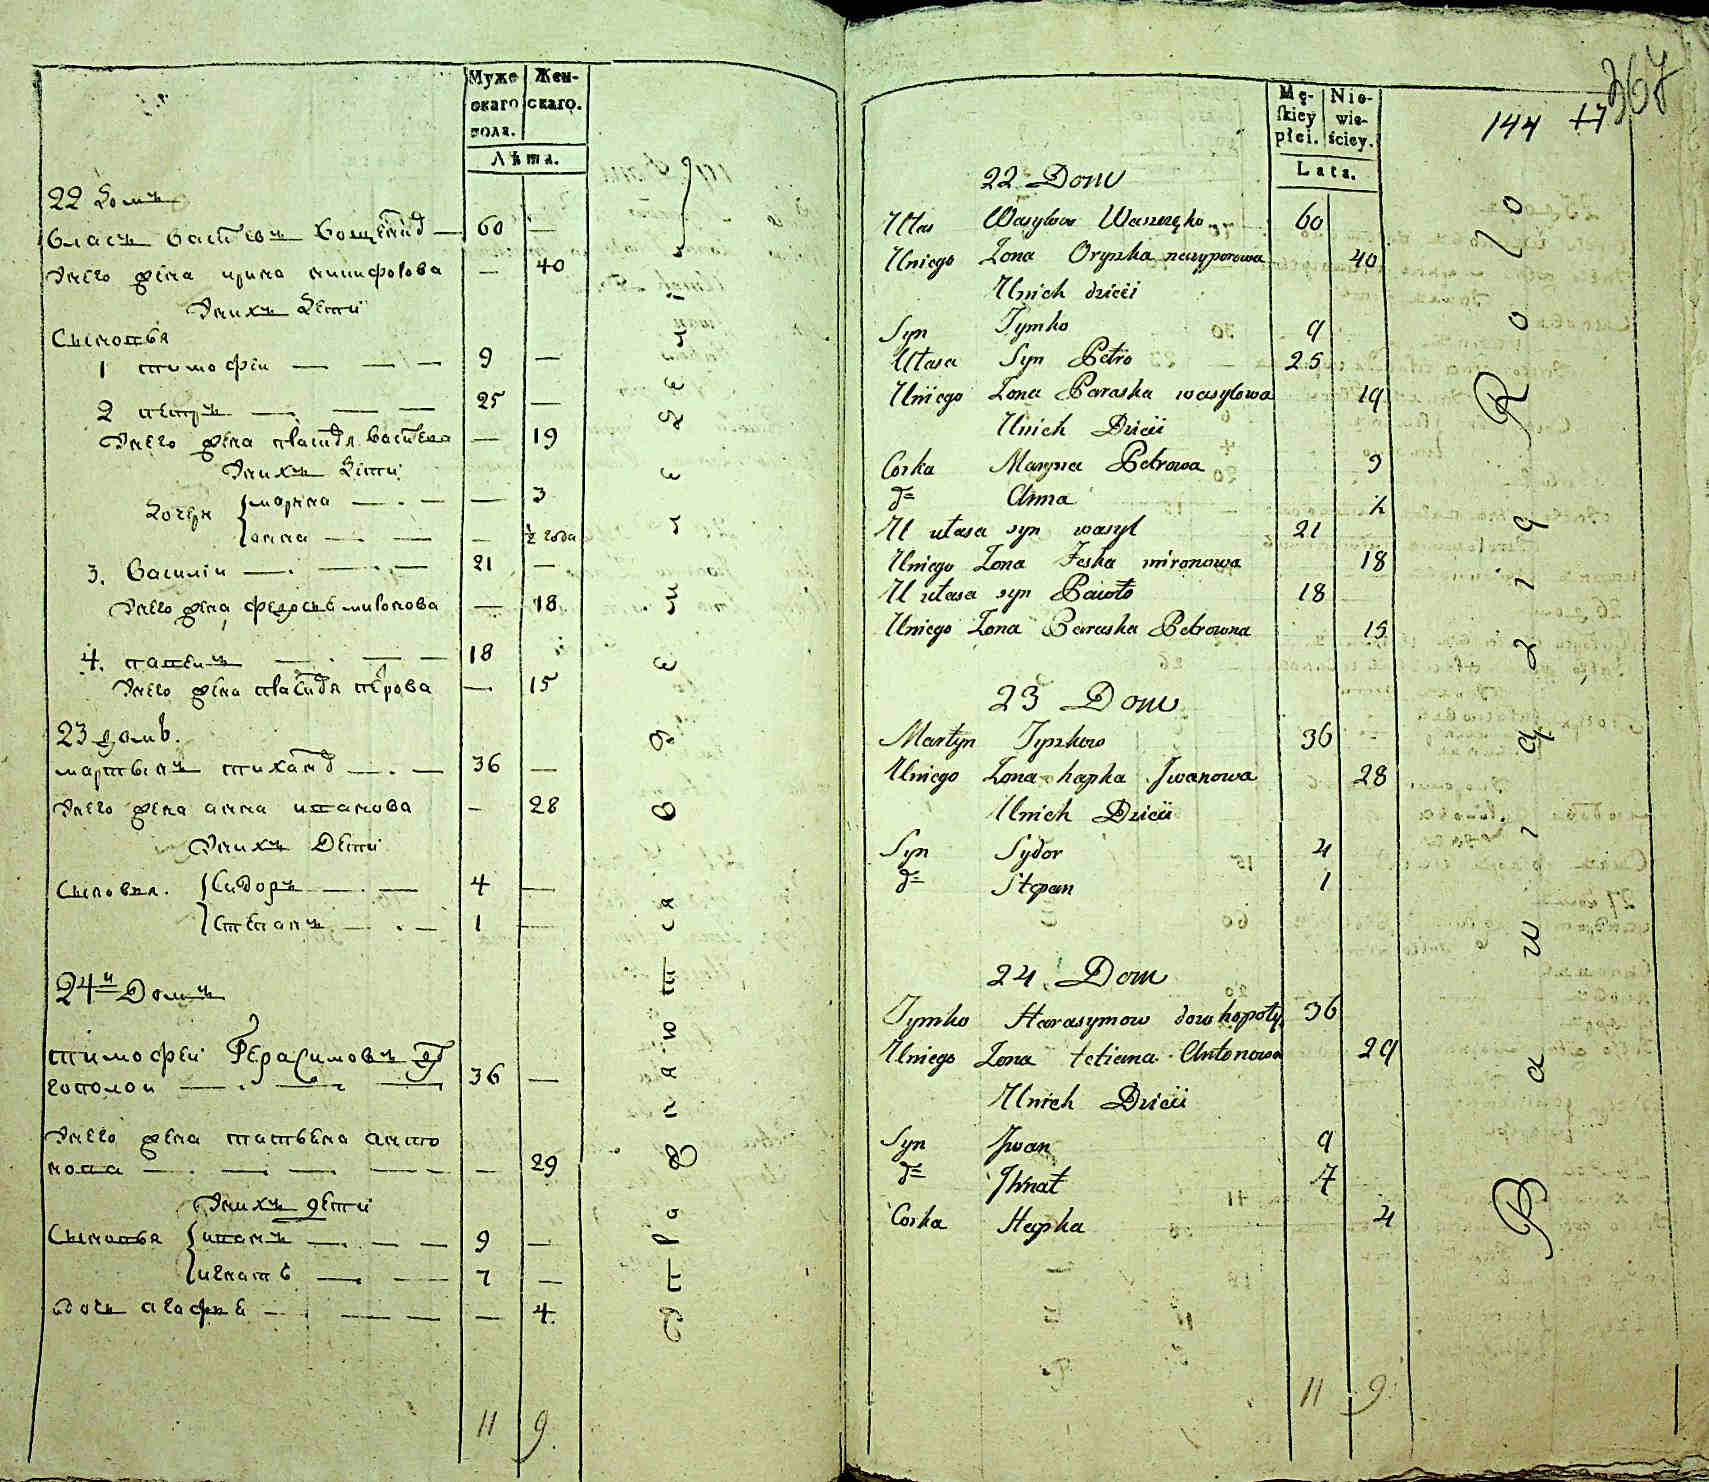 Муже
скаго
пола.
Жен-
скаго.
Лѣта.
22 домъ
Власъ Васильевъ 60 —
Унего жена Ирина Никифорова — 40
Унихъ дети
Сыновья
1 Тимофеи — 9 —
2 Петръ — 25 —
Унего жена — 19
Унихъ дети
дочери Марина — 3
Анна — ½ года
3. Василіи — 21 —
Унего жена Федосья Миронова — 18
4. Павелъ — 18
Унего жена — 15
23 домъ.
Мартынъ 36 —
Унего жена Анна Иванова — 28
Унихъ Дети
Сыновья. Сидоръ — 4 —
Степанъ — 1 —
24й Домъ
Тимофеи Герасимовъ дов
гополои — 36 —
Унего жена Татьяна Анто
нова — 29
Унихъ дети
Сыновья Иванъ — 9 —
Игнатъ — 7 —
дочь Агафья — 4.
11 9.
Mę-
skiey
płci.
Nie-
wie-
ściey.
Lata.
144 17
367
22 Dom
Ułas Wasylow Waszczęko 60
Uniego Zona Oryszka neczyporowa 40
Unich dzieii
Syn Tymko 9
Ułasa Syn Petro 25
Uniego Zona Paraska wasylowa 19
Unich Dzieii
Corka Maryna Petrowa 3
d= Anna ½
U ułasa syn wasyl 21
Uniego Zona Feska mironowa 18
U ułasa syn Pawło 18
Uniego Zona Paraska Petrowna 15
23 Dom
Martyn Tyszkow 36
Uniego Zona hapka Jwanowa 28
Unich Dzieii
Syn Sydor 4
d= Stepan 1
24 Dom
Tymko Harasymow dowhopoły 36
Uniego Zona tetiana Antonowa 29
Unich Dzieii
Syn Jwan 9
d= Jhnat 7
Corka Hapka 4
11 9